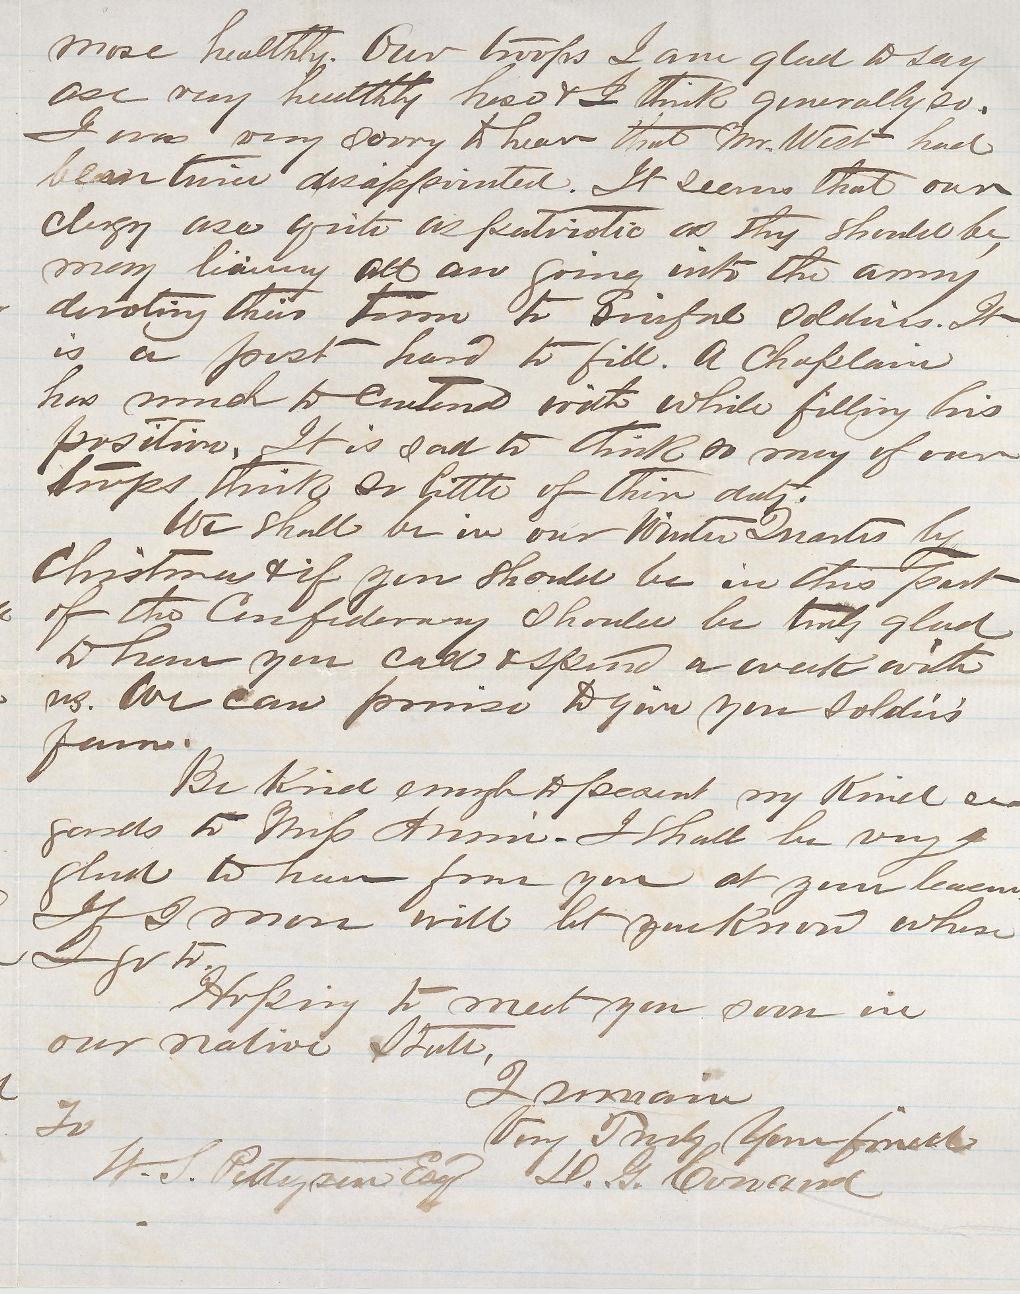 more healthy. Our troops I am glad to say
are very healthy here & I think generally so.
I was very sorry to hear that Mr. West had
been twice disappointed. It seems that our
clergy are quite as patriotic as thy should be,
many all are going into the army
devoting their time to sinful soldiers. It
is a post hard to fill. A Chaplain
has much to contend with while filling his
position. It is sad to think so many of our
troops think so little of their duty.
We shall be in our Winter Quarters by
Christmas & if you should be in this part
of the Confederacy should be truly glad
to have you call & spend a week with
us. We can promise to give you soldier's
fare.
Be Kind enough to present my Kind re
gards to Miss Annie - I shall be very
glad to hear from you at your leasure
If I move will let you Know where
I go to.
Hoping to meet you soon in
our native State,
I remain
Very Truly Your friend
To
W. S. Pettigrew Esq D. G. Cowand